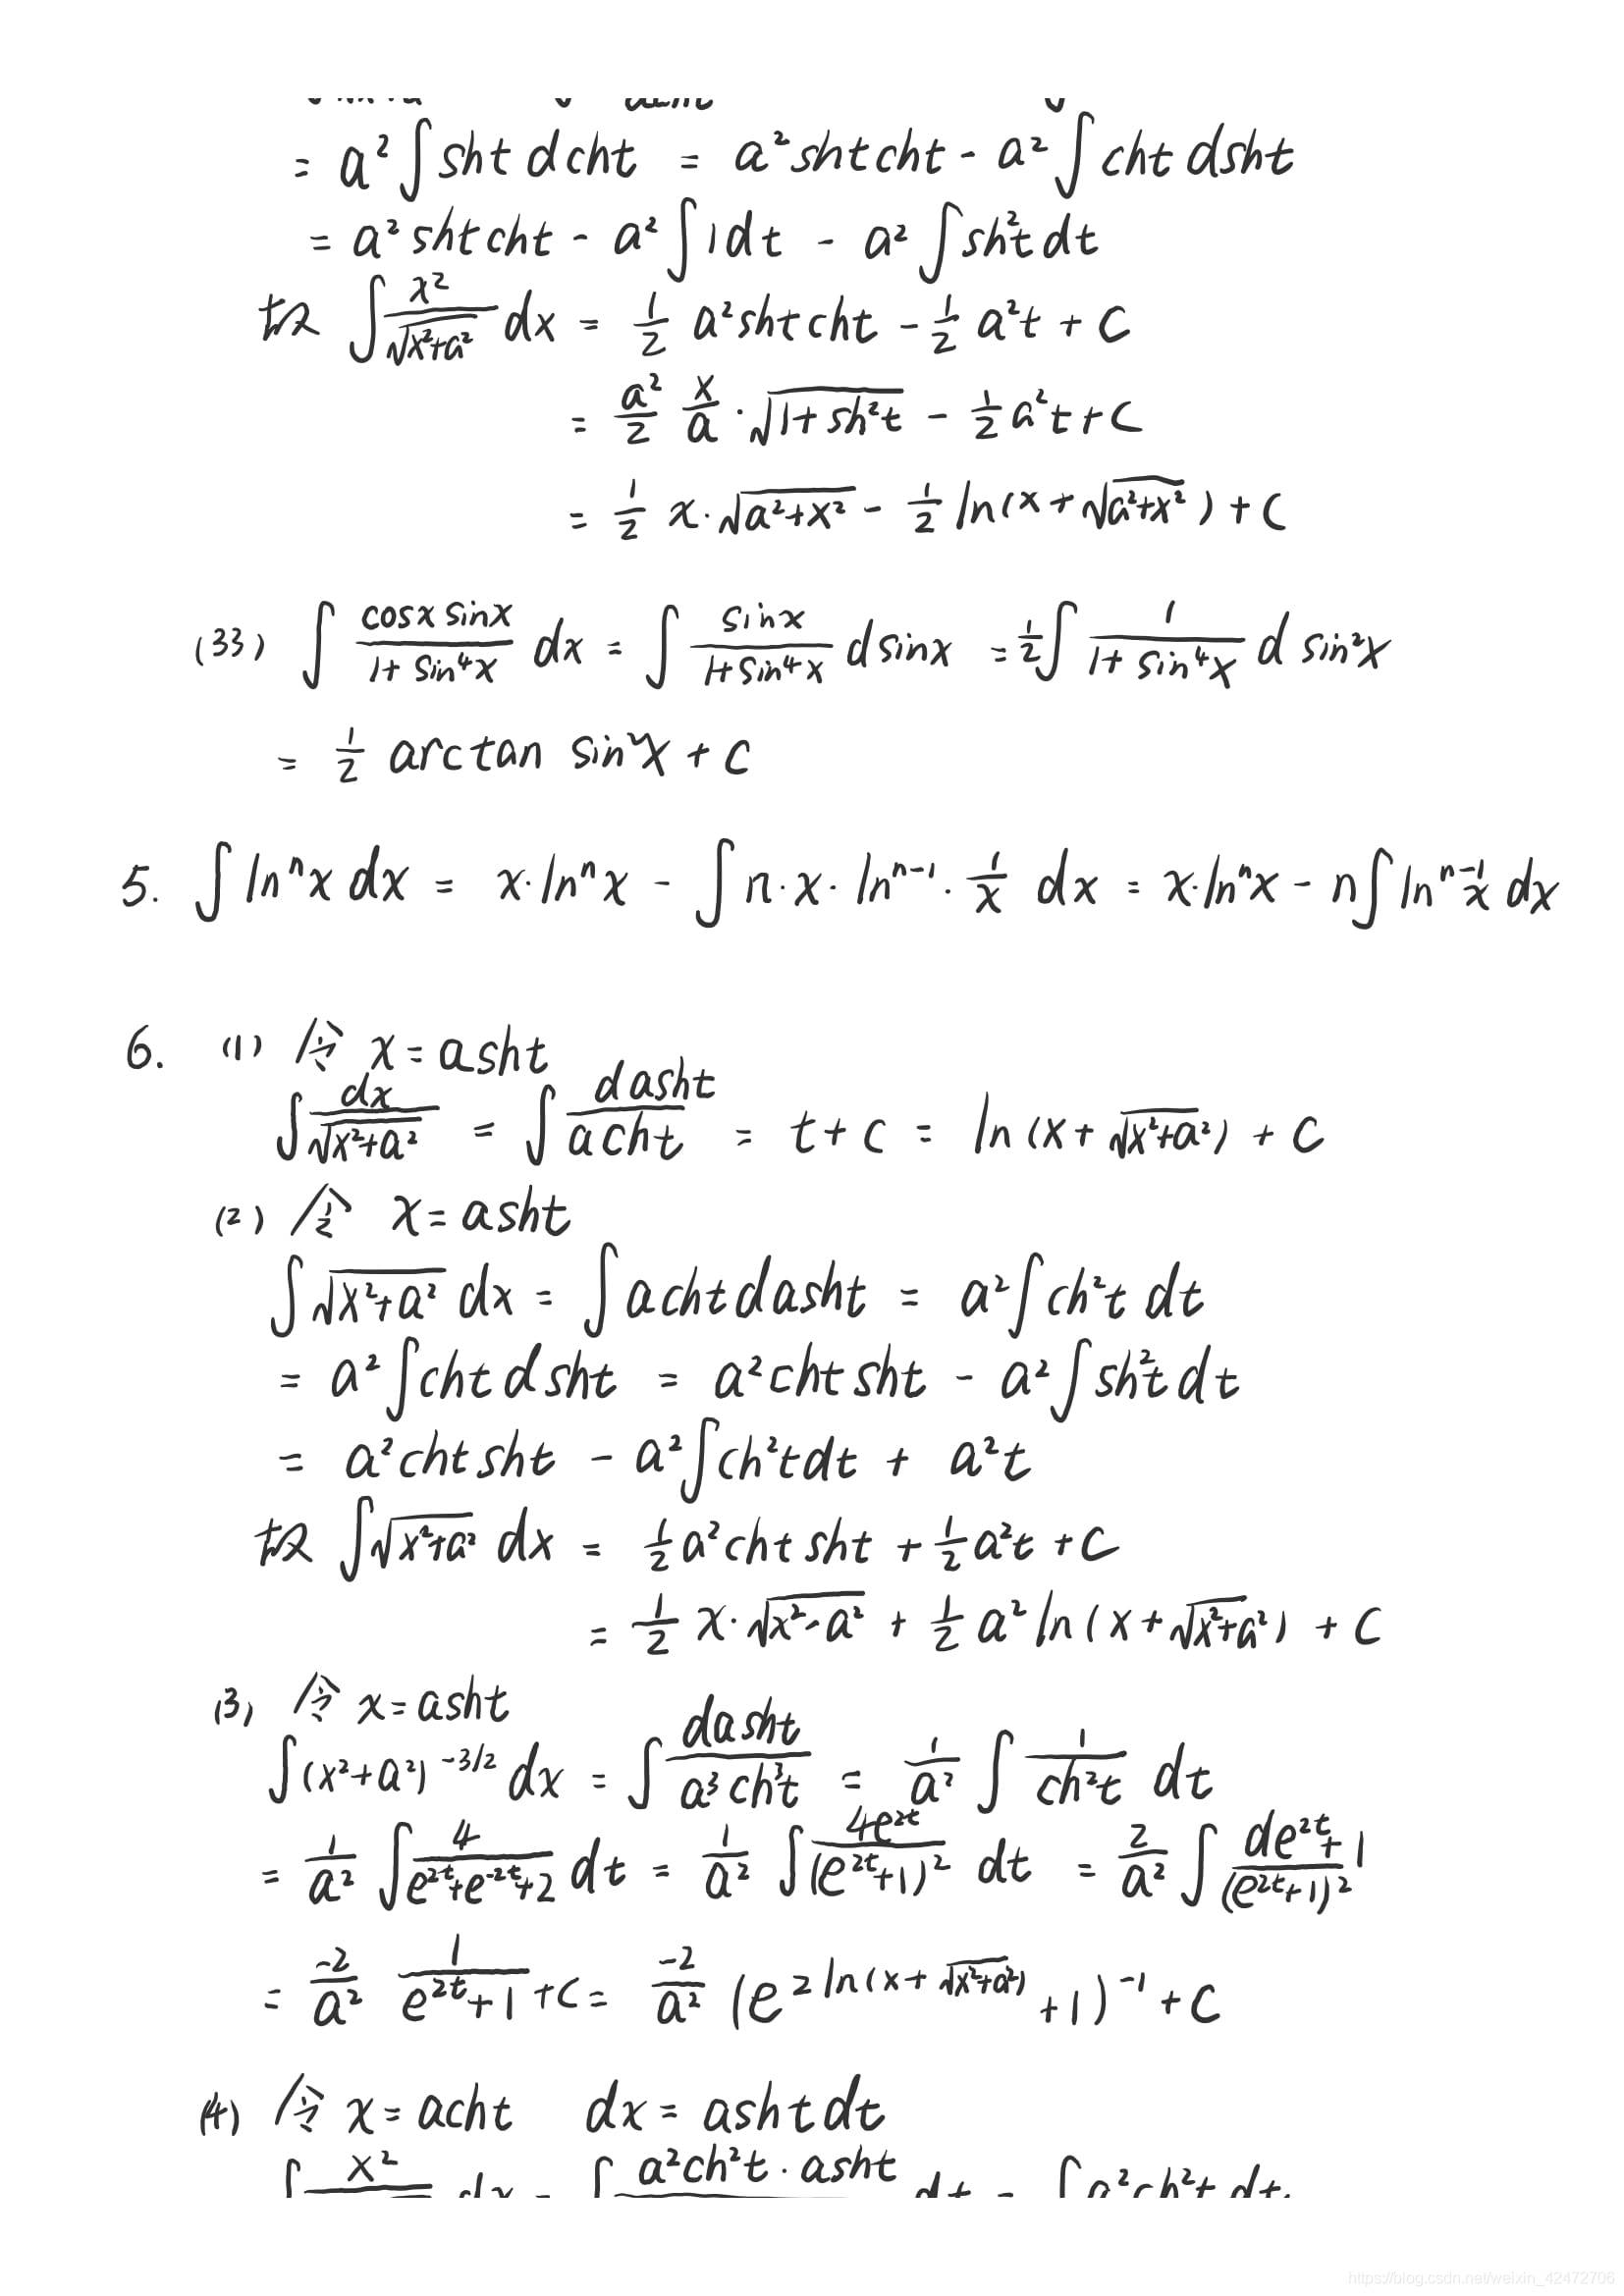 = a² ∫ sht dcht = a² sht cht - a² ∫ cht dsht
= a² sht cht - a² ∫ 1 dt - a² ∫ sh²t dt
故 ∫ x²/√(x²+a²) dx = 1/2 a² sht cht - 1/2 a²t + C
= a²/2 x/a · √(1+sh²t) - 1/2 a²t + C
= 1/2 x · √(a²+x²) - 1/2 ln(x+√(a²+x²)) + C
(33) ∫ cosx sinx/(1+sin⁴x) dx = ∫ sinx/(1+sin⁴x) dsinx = 1/2 ∫ 1/(1+sin⁴x) d sin²x
= 1/2 arctan sin²x + C
5. ∫ lnⁿx dx = x·lnⁿx - ∫ n·x·lnⁿ⁻¹·1/x dx = x·lnⁿx - n∫ lnⁿ⁻¹x dx
6. (1) 令 x = asht
∫ dx/√(x²+a²) = ∫ dasht/acht = t + C = ln(x+√(x²+a²)) + C
(2) 令 x = asht
∫ √(x²+a²) dx = ∫ acht dasht = a² ∫ ch²t dt
= a² ∫ cht dsht = a² cht sht - a² ∫ sh²t dt
= a² cht sht - a² ∫ ch²t dt + a²t
故 ∫ √(x²+a²) dx = 1/2 a² cht sht + 1/2 a²t + C
= 1/2 x · √(x²-a²) + 1/2 a² ln(x+√(x²+a²)) + C
(3) 令 x = asht
∫ (x²+a²)^(-3/2) dx = ∫ dasht/(a³ch³t) = 1/a² ∫ 1/ch²t dt
= 1/a² ∫ 4/(e^(2t)+e^(-2t)+2) dt = 1/a² ∫ 4e^(2t)/(e^(2t)+1)² dt = 2/a² ∫ de^(2t)+1/(e^(2t)+1)²
= -2/a² 1/(e^(2t)+1) + C = -2/a² (e^(2ln(x+√(x²+a²))) + 1)⁻¹ + C
(4) 令 x = acht dx = asht dt
x² dx = ∫ a²ch²t · asht dt = ∫ a²ch²t dt
https://blog.csdn.net/weixin_42472706